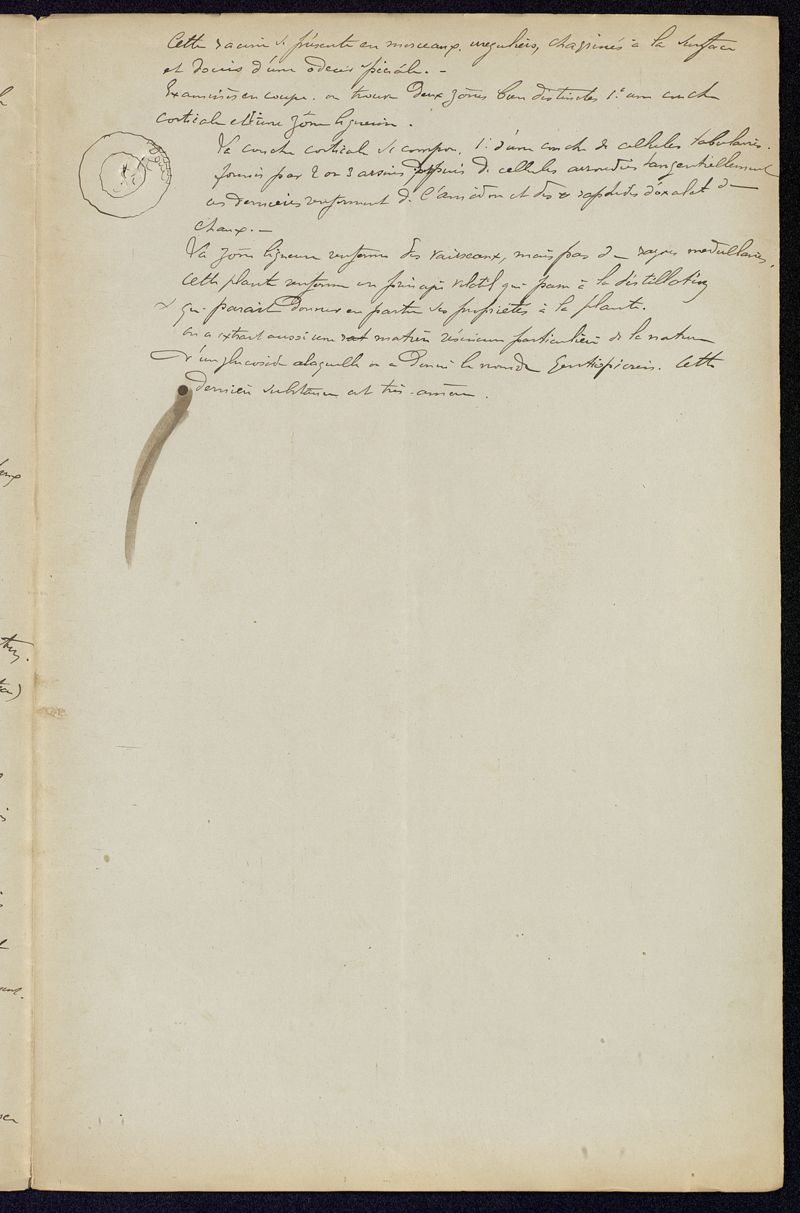 Cette racine se présente en morceaux irreguliers, chagrinés à la surface
et douées d'une odeur spéciale. -
Examinées en coupe on trouve deux zônes bien distinctes 1° une couche
corticale et une zône ligneuse.
La couche corticale se compose, 1° d'une couche de cellules tabulaires.
formées par 2 ou 3 assises de cellules arrondies tangentiellement
ces dernières renferment de l'amidon et des raphides d'oxalate de
chaux. -
La zône ligneuse renferme des vaisseaux, mais pas de rayons medullaires.
Cette plante renferme un principe volatil qui passe à la distillation
& qui parait donner en partie ses propriétés à la plante.
on a extrait aussi une matière résineuse particulière de la nature
d'un glucoside a laquelle on a donné le nom de Gentiopicrin. Cette
dernière substance est très-amère.